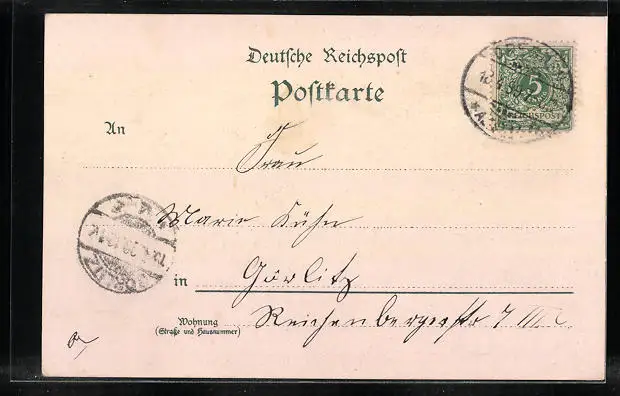 Deutsche Reichspost
Postkarte
5
REICHSPOST
An
Frau
Marie Kühn
in Görlitz
Wohnung
(Straße und Hausnummer)
Reichenbergerstr 7 III